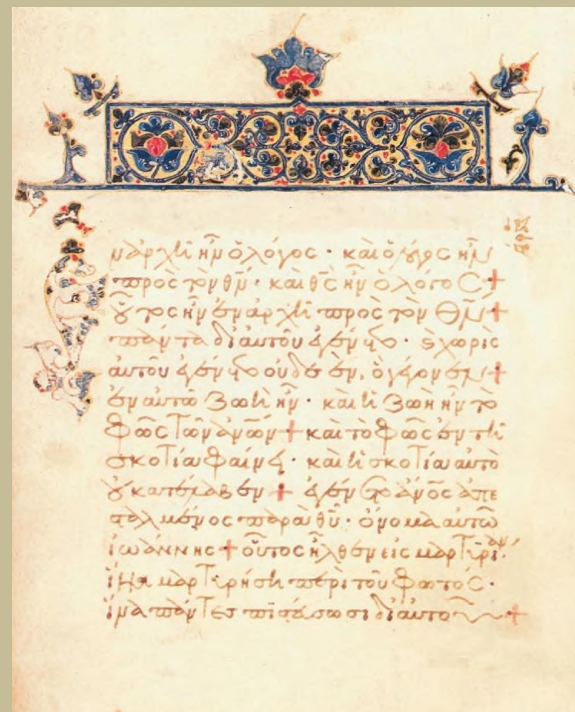 ναρχῆ ἦν ὁ λόγος · καὶ ὁ λόγος ἦν
πρὸς τὸν θν̄ · καὶ θς̄ ἦν ὁ λόγος +
οὗτος ἦν ἐν ἀρχῆ πρὸς τὸν θν̄ +
πάντα δι αὐτοῦ ἐγένετο · καὶ χωρὶς
αὐτοῦ ἐγένετο οὐδὲ ἕν, ὃ γέγονεν +
ἐν αὐτῶ ζωὴ ἦν · καὶ ἡ ζωὴ ἦν τὸ
φῶς τῶν ἀνῶν + καὶ τὸ φῶς ἐν τῆ
σκοτία φαίνει · καὶ ἡ σκοτία αὐτὸ
οὐ κατέλαβεν + ἐγένετο ἄνος ἀπε
σταλμένος παρὰ θῦ · ὄνομα αὐτῶ
ἰωάννης + οὗτος ἦλθεν εἰς μαρτυρίαν ·
ἵνα μαρτυρήση περὶ τοῦ φωτός ·
ἵνα πάντες πιστεύσωσι δι αὐτοῦ +